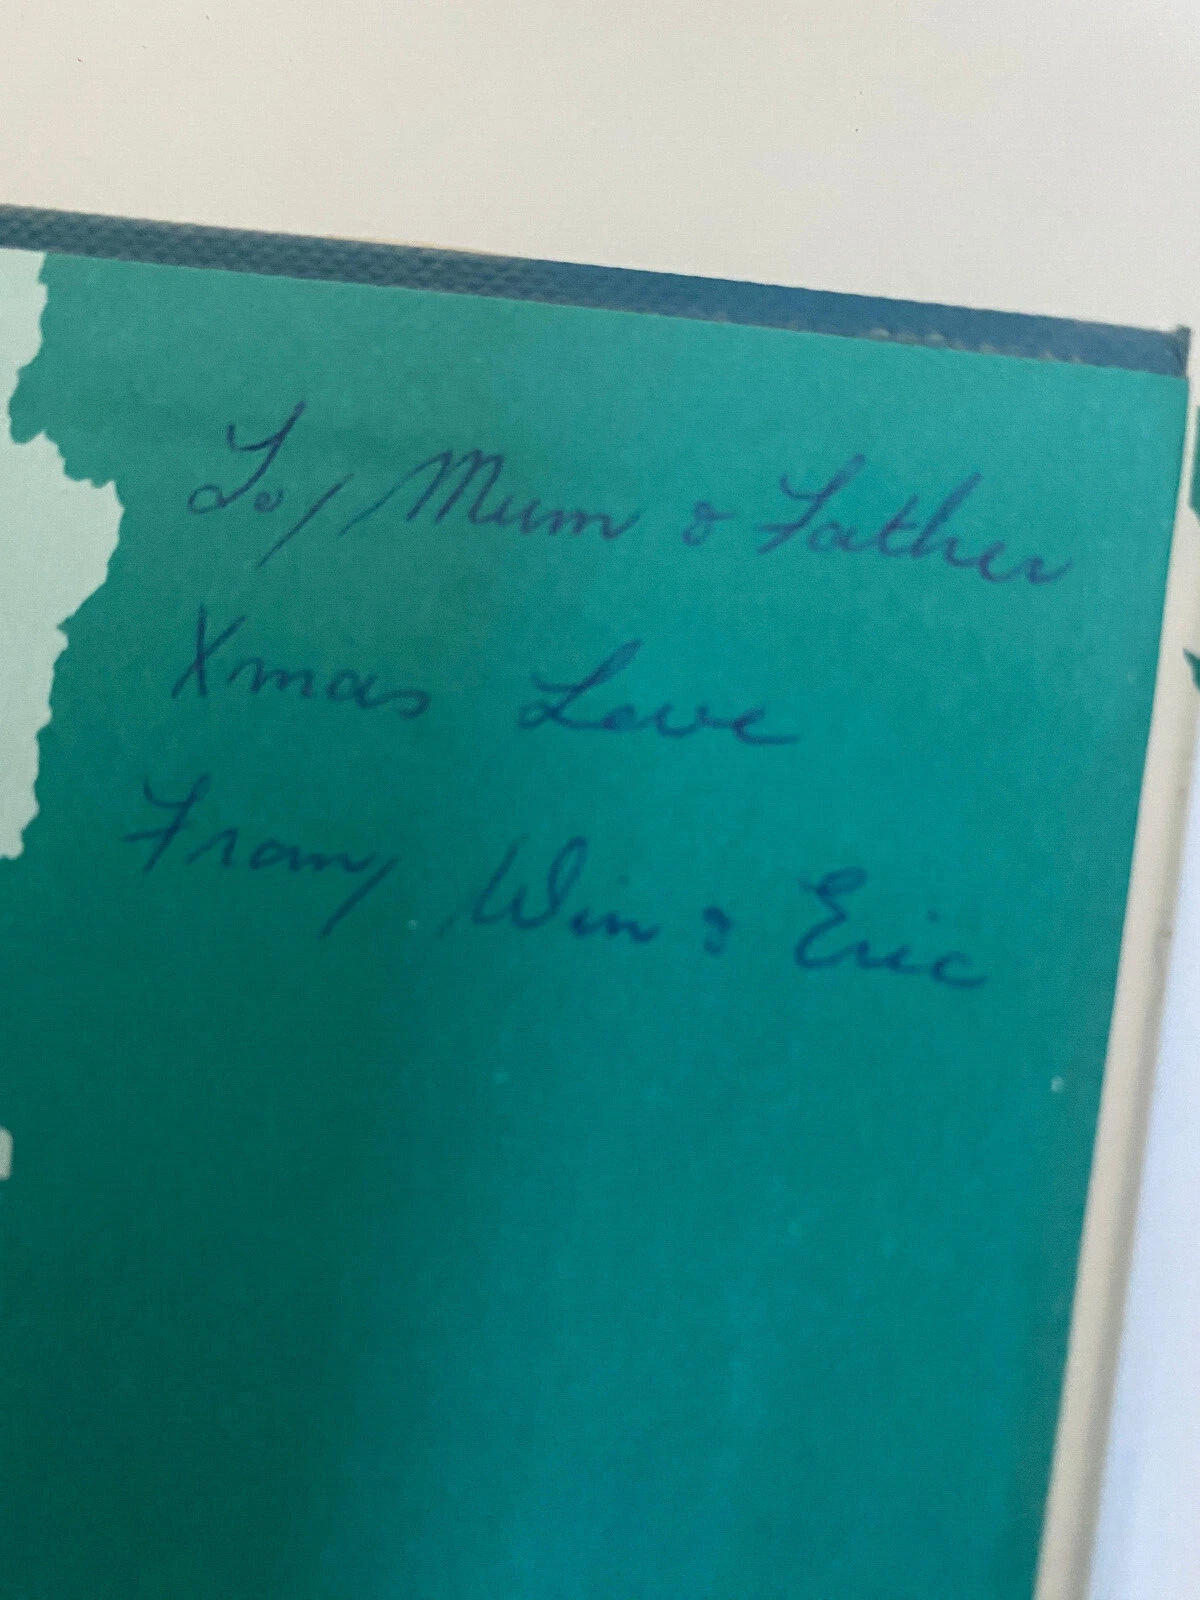 To/ Mum & Father
Xmas Love
From/ Win & Eric